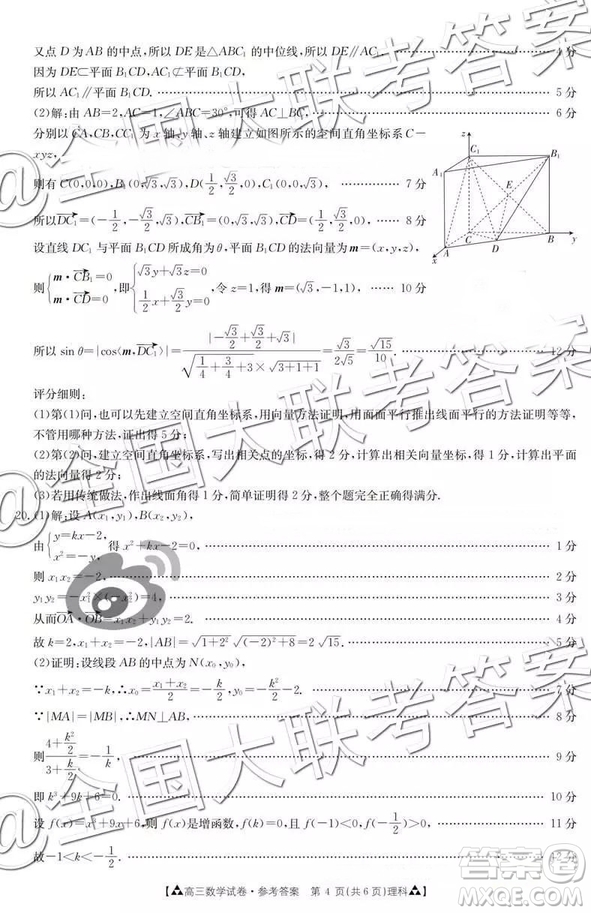 又点 D 为 AB 的中点,所以 DE 是△ABC₁ 的中位线,所以 DE∥AC₁. …… 4 分
因为 DE⊂平面 B₁CD, AC₁⊄平面 B₁CD,
所以 AC₁∥平面 B₁CD. …… 5 分
(2)解:由 AB=2,AC=1,∠ABC=30°,可得 AC⊥BC, …… 6 分
分别以 CA,CB,CC₁ 为 x 轴,y 轴,z 轴建立如图所示的空间直角坐标系 C-
xyz,
则有 C(0,0,0),B₁(0,√3,√3),D(1/2,√3/2,0),C₁(0,0,√3), …… 7 分
所以DC₁=(-1/2,-√3/2,√3),CB₁=(0,√3,√3),CD=(1/2,√3/2,0), …… 8 分
设直线 DC₁ 与平面 B₁CD 所成角为 θ,平面 B₁CD 的法向量为 m=(x,y,z),
则{m·CB₁=0 m·CD=0,即{√3y+√3z=0 1/2x+√3/2y=0,令 z=1,得 m=(√3,-1,1), …… 10 分
所以 sin θ=|cos⟨m,DC₁⟩|=|-√3/2+√3/2+√3|/(√(1/4+3/4+3)×√(3+1+1))=√3/(2√5)=√15/10. …… 12 分
z
A₁
B₁
E
C
A
D
B
x
y
评分细则:
(1)第(1)问,也可以先建立空间直角坐标系,用向量方法证明,用面面平行推出线面平行的方法证明等等,
不管用哪种方法,证出得 5 分;
(2)第(2)问,建立空间直角坐标系,写出相关点的坐标,得 2 分,计算出相关向量的坐标,得 1 分,计算出平
面法向量的坐标得 2 分,计算出结果得 2 分;
(3)若用传统做法,作出线面角得 1 分,简单证明得 2 分,整个题完全正确得满分.
20. (1)解:设 A(x₁,y₁),B(x₂,y₂),
由{y=kx-2, x²=-y,得 x²+kx-2=0, …… 1 分
则 x₁x₂=-2, …… 2 分
y₁y₂=-x₁²×(-x₂²)=4, …… 3 分
从而OA·OB=x₁x₂+y₁y₂=2. …… 4 分
故 k=2,x₁+x₂=-2,|AB|=√(1+2²) √((-2)²+8)=2√15. …… 5 分
(2)证明:设线段 AB 的中点为 N(x₀,y₀),
∵x₁+x₂=-k,∴x₀=(x₁+x₂)/2=-k/2,y₀=-k²/2-2. …… 7 分
∵|MA|=|MB|,∴MN⊥AB, …… 8 分
则(4+k²/2)/(3+k/2)=-1/k, …… 9 分
即 k³+9k+6=0. …… 10 分
设 f(x)=x³+9x+6,则 f(x)是增函数,f(k)=0,且 f(-1)<0,f(-1/2)>0, …… 11 分
故-1<k<-1/2. …… 12 分
【▲高三数学试卷·参考答案 第 4 页(共 6 页)理科▲】
@全国大联考答案
@全国大联考答案
@全国大联考答案
答案圈
MXQE.COM